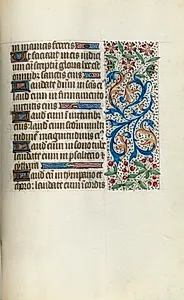 in manicis ferreis
Ut faciant in eis iudici
um conscriptum gloria hec est
omnibus sanctis eius
Laudate dominum in sanctis
eius laud eum in firmamento
virtutis eius
Laud eum in virtutibus
eius laud eum secundum
multitudinem magnitudinis eius
Laud eum in sono tube
laudate eum in psalterio et
cythara
Laud eum in tympano et
choro laudate eum in cordis